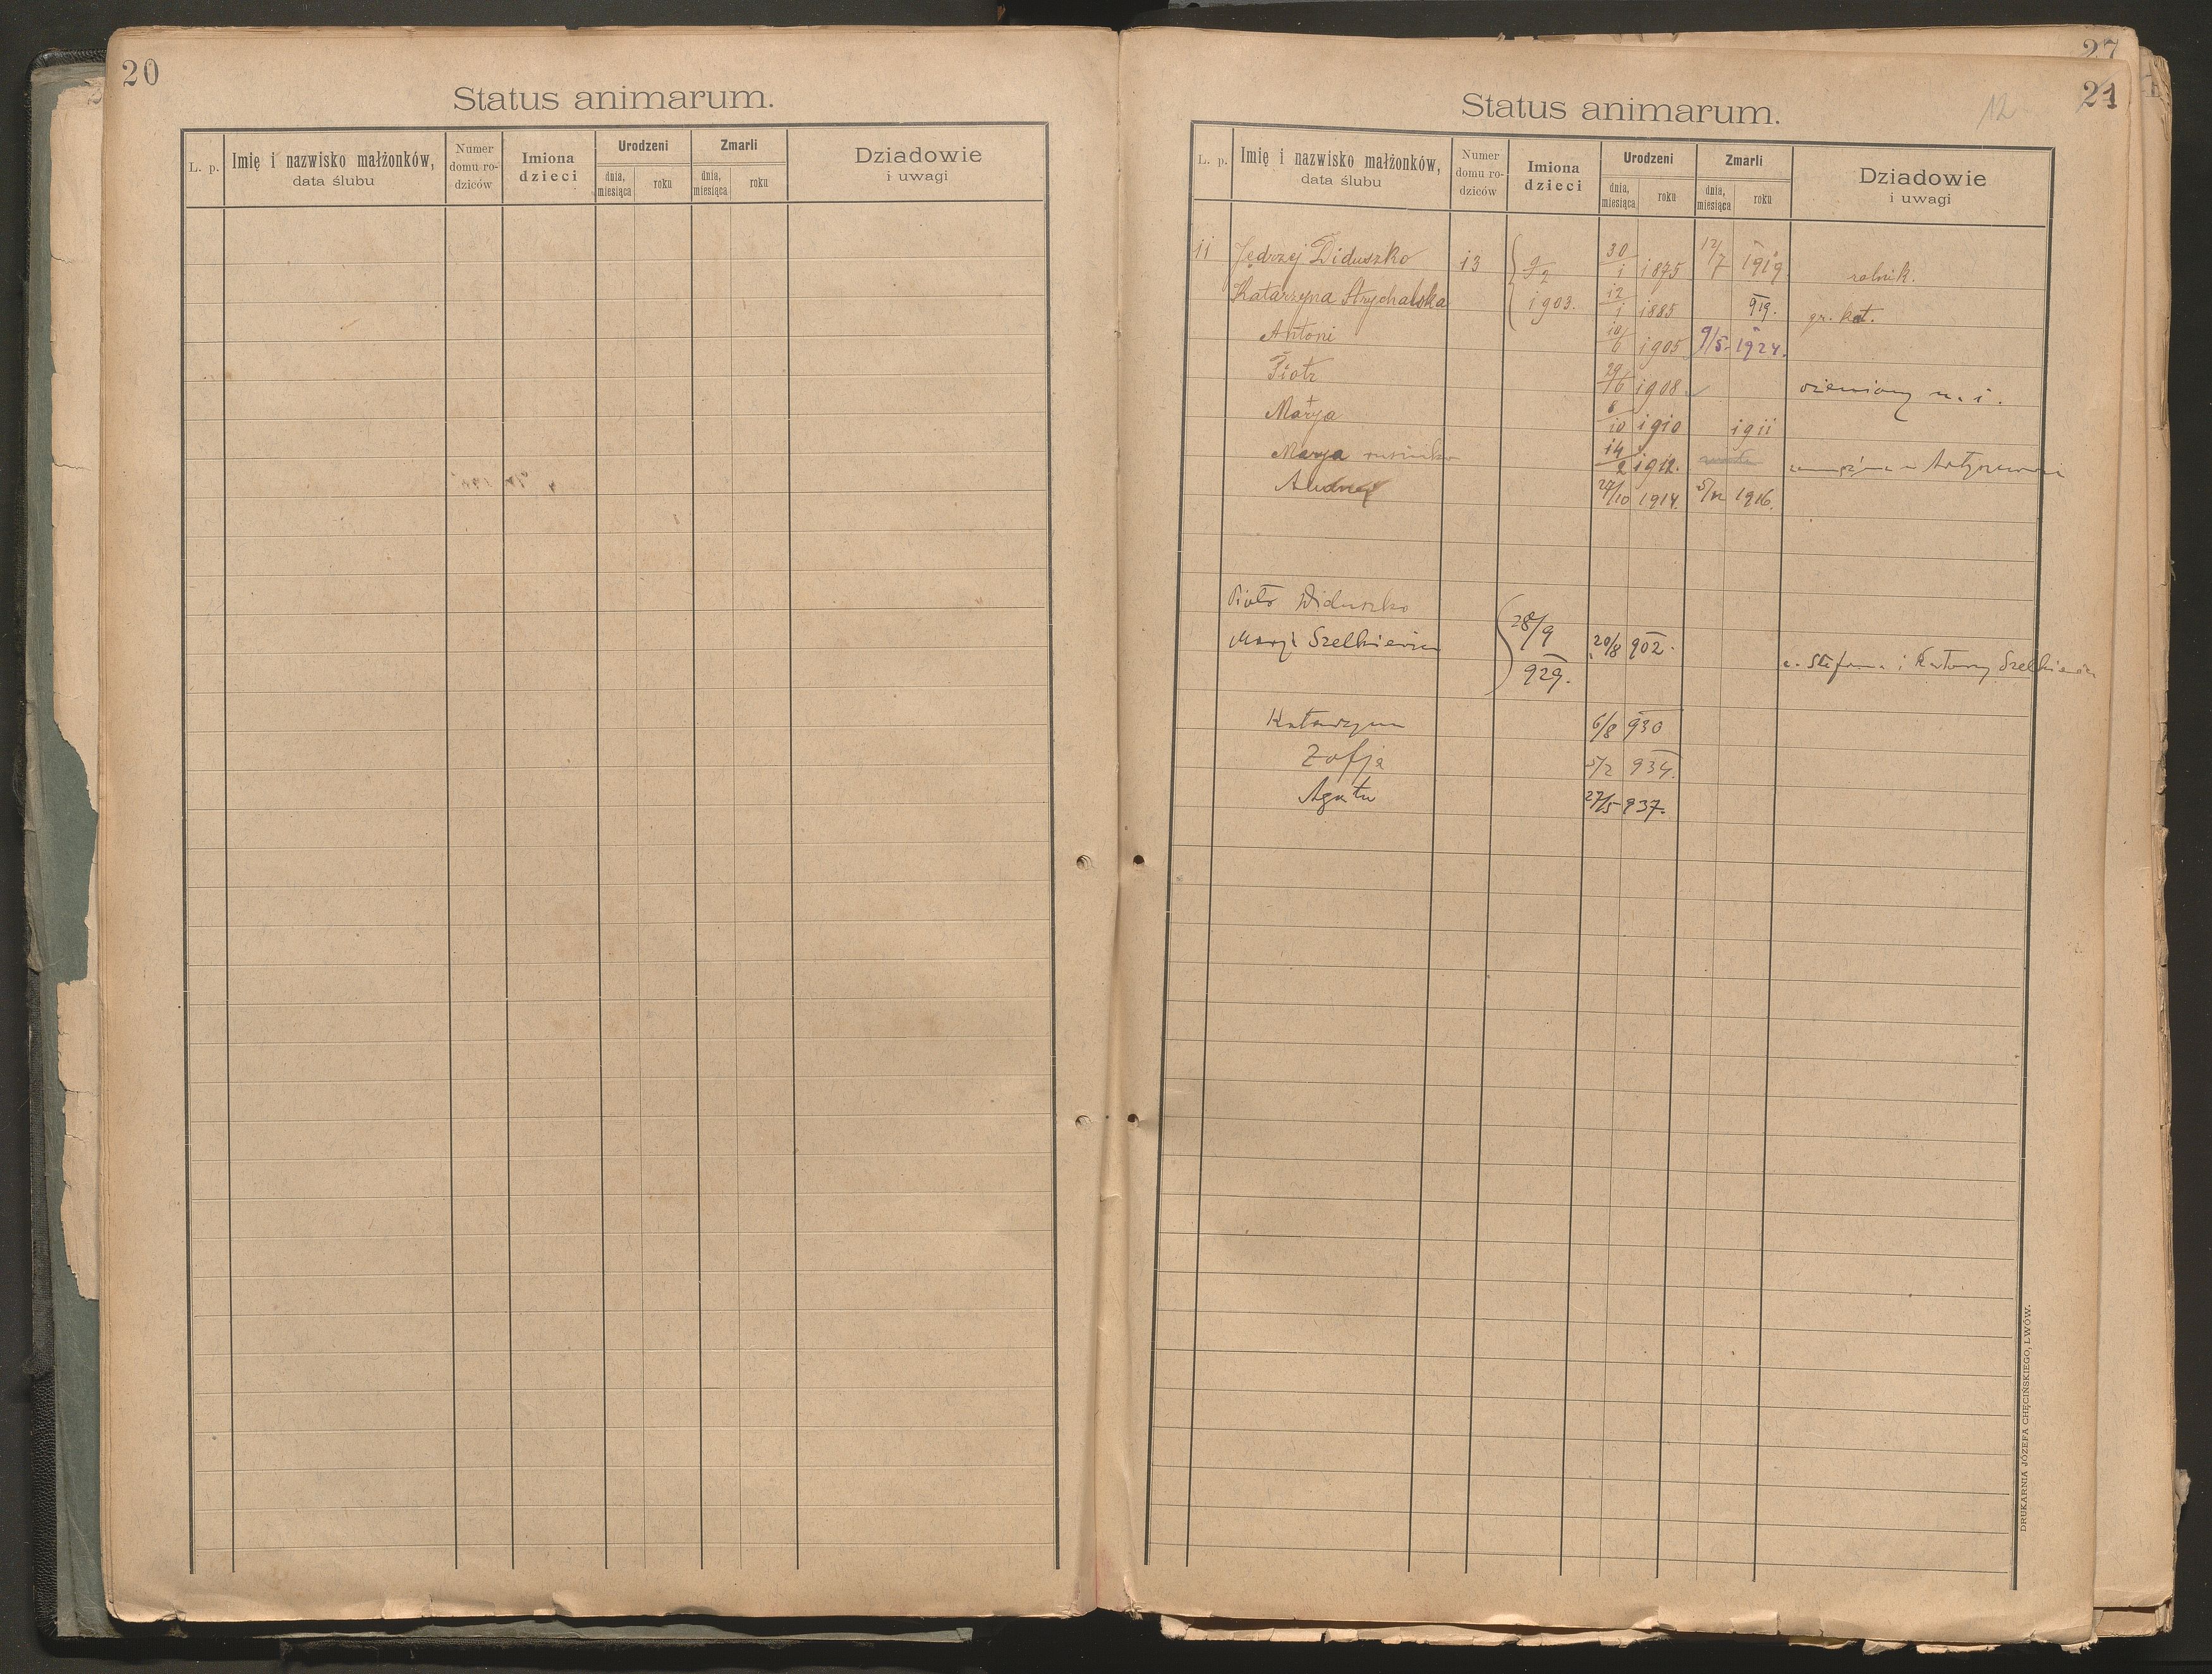 20
Status animarum.
L. p. | Imię i nazwisko małżonków, data ślubu | Numer domu ro-dziców | Imiona dzieci | Urodzeni dnia, miesiąca roku | Zmarli dnia, miesiąca roku | Dziadowie i uwagi
27
21
12
Status animarum.
L. p. | Imię i nazwisko małżonków, data ślubu | Numer domu ro-dziców | Imiona dzieci | Urodzeni dnia, miesiąca roku | Zmarli dnia, miesiąca roku | Dziadowie i uwagi
11 Jędrzej Diduszko 13 9/2 30/1 1875 12/7 1919 rolnik.
Katarzyna Strychalska 1903. 12/1 1885 919. gr. kat.
Antoni 10/6 1905 9/5 1924.
Piotr 29/6 1908 ożeniony n. i.
Marja 8/10 1910 1911
Marja 14/2 1912.
Andrzej 27/10 1914. 5/12 1916.
Piotr Diduszko 28/9
Marja Szelkiewicz 929. 20/8 902. c. Stefana i Szelkiewicz
Katarzyna 6/8 930
Zofja 5/2 934.
Agata 27/5 937.
DRUKARNIA JÓZEFA CHĘCIŃSKIEGO, LWÓW.